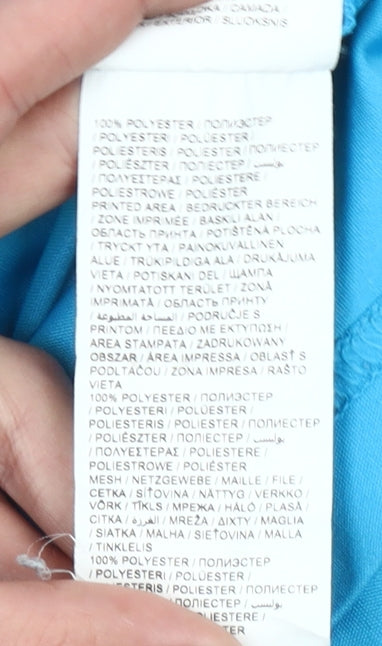 EXTERIOR / SLUOKSNIS
100% POLYESTER / ПОЛИЭСТЕР
/ POLYESTERI / POLÜESTER /
POLIESTERIS / POLIESTER / ПОЛИЕСТЕР
/ POLIÉSZTER / ПОЛІЕСТЕР / بوليستر
/ ΠΟΛΥΕΣΤΕΡΑΣ / POLIESTERE /
POLIESTROWE / POLIÉSTER
PRINTED AREA / BEDRUCKTER BEREICH
/ ZONE IMPRIMÉE / BASKILI ALAN /
ОБЛАСТЬ ПРИНТА / POTIŠTĚNÁ PLOCHA
/ TRYCKT YTA / PAINOKUVALLINEN
ALUE / TRÜKIPILDIGA ALA / DRUKĀJUMA
VIETA / POTISKANI DEL / ЩАМПА
/ NYOMTATOTT TERÜLET / ZONĂ
IMPRIMATĂ / ОБЛАСТЬ ПРИНТУ
/ المساحة المطبوعة / PODRUČJE S
PRINTOM / ΠΕΔΙΟ ΜΕ ΕΚΤΥΠΩΣΗ /
ÁREA STAMPATA / ZADRUKOWANY
OBSZAR / ÁREA IMPRESSA / OBLASŤ S
PODTLAČOU / ZONA IMPRESA / RAŠTO
VIETA
100% POLYESTER / ПОЛИЭСТЕР
/ POLYESTERI / POLÜESTER /
POLIESTERIS / POLIESTER / ПОЛИЕСТЕР
/ POLIÉSZTER / ПОЛІЕСТЕР / بوليستر
/ ΠΟΛΥΕΣΤΕΡΑΣ / POLIESTERE /
POLIESTROWE / POLIÉSTER
MESH / NETZGEWEBE / MAILLE / FILE /
СЕТКА / SÍŤOVINA / NÄTTYG / VERKKO /
VÕRK / TĪKLS / МРЕЖА / HÁLÓ / PLASĂ /
СІТКА / الغرزة / MREŽA / ΔΙΧΤΥ / MAGLIA
/ SIATKA / MALHA / SIEŤOVINA / MALLA
/ TINKLELIS
100% POLYESTER / ПОЛИЭСТЕР
/ POLYESTERI / POLÜESTER /
/ POLIESTER / ПОЛИЕСТЕР
ПОЛІЕСТЕР / بوليستر